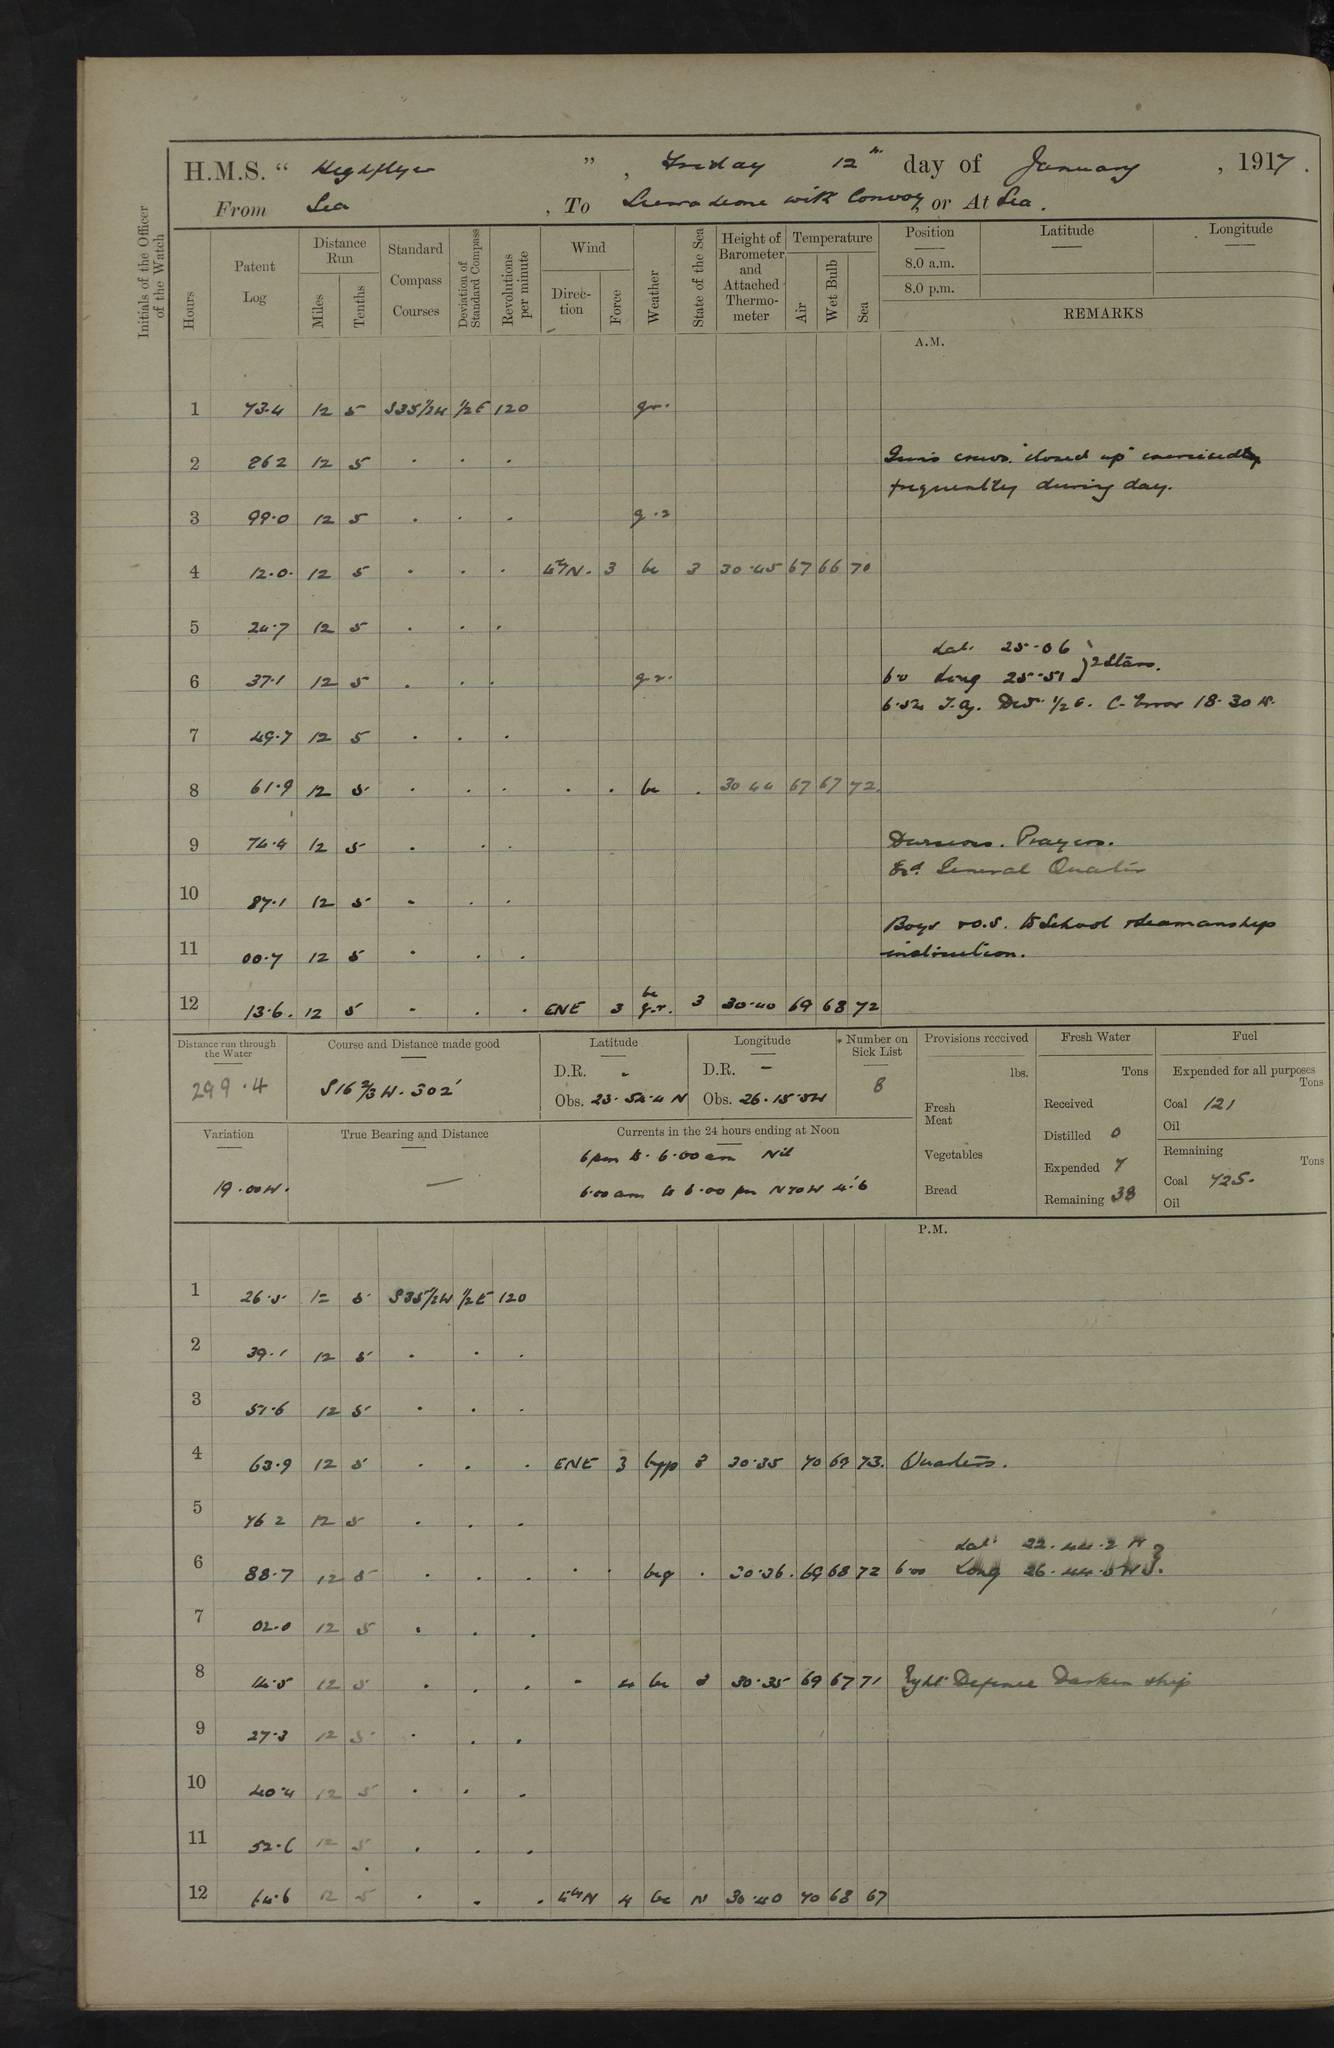 H.M.S. " Highflyer ", Friday 12th day of January, 1917.
From Sea, To Sierra Leone with Convoy, or At Sea.
Initials of the Officer of the Watch
Hours Patent Log Distance Run Miles Tenths Standard Compass Courses Deviation of Standard Compass Revolutions per minute Wind Direction Force Weather State of the Sea Height of Barometer and Attached Thermometer Temperature Air Wet Bulb Sea Position Latitude Longitude
8.0 a.m.
8.0 p.m.
REMARKS
A.M.
1 73.4 12 5 S35½W ½E 120 g.r.
2 86 2 12 5 . . . Guns crews "closed up" exercised
frequently during day.
3 99.0 12 5 . . . g.r
4 12.0. 12 5 . . . N. 3 bc 3 30.45 67 66 70
5 24.7 12 5 . . .
Lat. 25-06
6 37.1 12 5 . . . g.r. 6.0 Long 25-51 } 2 Stars.
6.52 T.Az. Dev. ½ E. C-Error 18.30 W.
7 49.7 12 5 . . .
8 61.9 12 5 . . . . . bc . 30 44 67 67 72.
9 74.4 12 5 . . . Divisions. Prayers.
General Quarters
10 87.1 12 5 . . .
Boys & O.S. to School & Seamanship
11 00.7 12 5 . . . instruction.
12 13.6. 12 5 . . . ENE 3 bc g.r. 3 30.40 69 68 72
Distance run through the Water Course and Distance made good Latitude Longitude * Number on Sick List Provisions received Fresh Water Fuel
299.4 S16⅔W. 302' D.R. - D.R. - 8 lbs. Tons Expended for all purposes Tons
Obs. 23.54.4 N Obs. 26.15.5W Fresh Meat Received Coal 121
Oil
Variation True Bearing and Distance Currents in the 24 hours ending at Noon Distilled 0
6 pm to 6.00 am Nil Vegetables Expended 7 Remaining Tons
19.00W. — 6.00 am to 6.00 pm N70W 4.6 Bread Remaining 38 Coal 725.
Oil
P.M.
1 26.5 12 5 S35½W ½E 120
2 39.1 12 5 . . .
3 51.6 12 5 . . .
4 63.9 12 5 . . . ENE 3 3 30.35 70 69 73. Quarters.
5 76 2 12 5 . . .
Lat. 22.44.2 N
6 88.7 12 5 . . . . . bcq . 30.36. 69 68 72 6.00 Long 26.44.5W
7 02.0 12 5 . . .
8 14.5 12 5 . . . - 4 bc 3 30.35 69 67 71 Night Defence Darken ship
9 27.3 12 5 . . .
10 40.4 12 5 . . .
11 52.6 12 5 . . .
12 64.6 12 5 . . . N 4 bc N 30.40 70 68 67